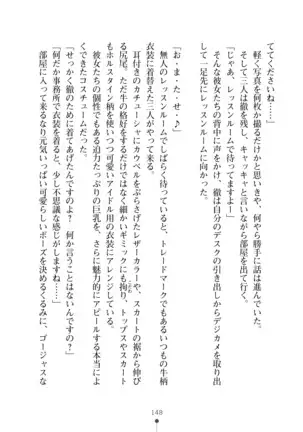 てくださいね」
軽く写真を何枚か撮るだけかと思いきや、何やら勝手に話は進んで
そして三人は徹を残し、キャッキャと言いながら部屋を出て行く。
「じゃあ、レッスンルームで待ってますよー」
そんな彼女たちの背中に声をかけ、徹は自分のデスクの引き出しからデジカメを取り出
して一足先にレッスンルームに向かった。
「お・ま・た・せ・♪」
無人のレッスンルームでしばらく待っていると、トレードマークでもあるいつもの牛柄
衣装に着替えた三人がやって来る。
耳付きのカチューシャにカウベルをぶらさげたレザーカラー、スカートの裾から伸び
る尻尾。ただ牛の格好をするだけではなく細かいギミックにも拘り、トップスやスカート
もホルスタイン柄の可愛いアイドル用の衣装にアレンジしている。
彼女たちの個性でもある迫力たっぷりの巨乳を、さらに魅力的にアピールする本当によ
くできたコスチュームだった。
「せっかく徹のために着てあげたんですのよ？　何か言うことはないんですの？」
「何だか事務所で衣装を着るのって、少し不思議な感じがしますね……」
部屋に入るなり元気いっぱいの可愛らしいポーズを決めるくるみに、ゴージャスな
148